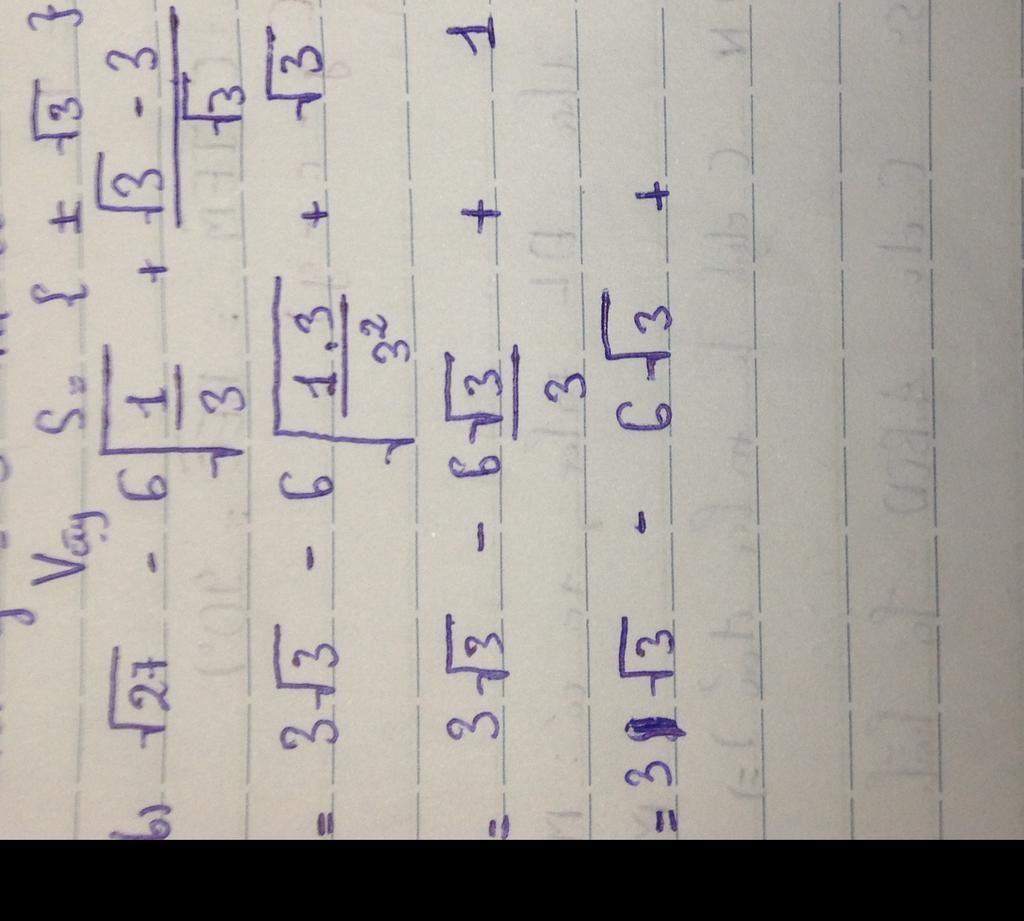 Vậy S = { ± √3 }
b) √27 - 6 √(1/3) + (√3 - 3)/√3
= 3√3 - 6 √(1.3/3²) + √3
= 3√3 - 6 √3/3 + 1
= 3 √3 - 6 √3 +